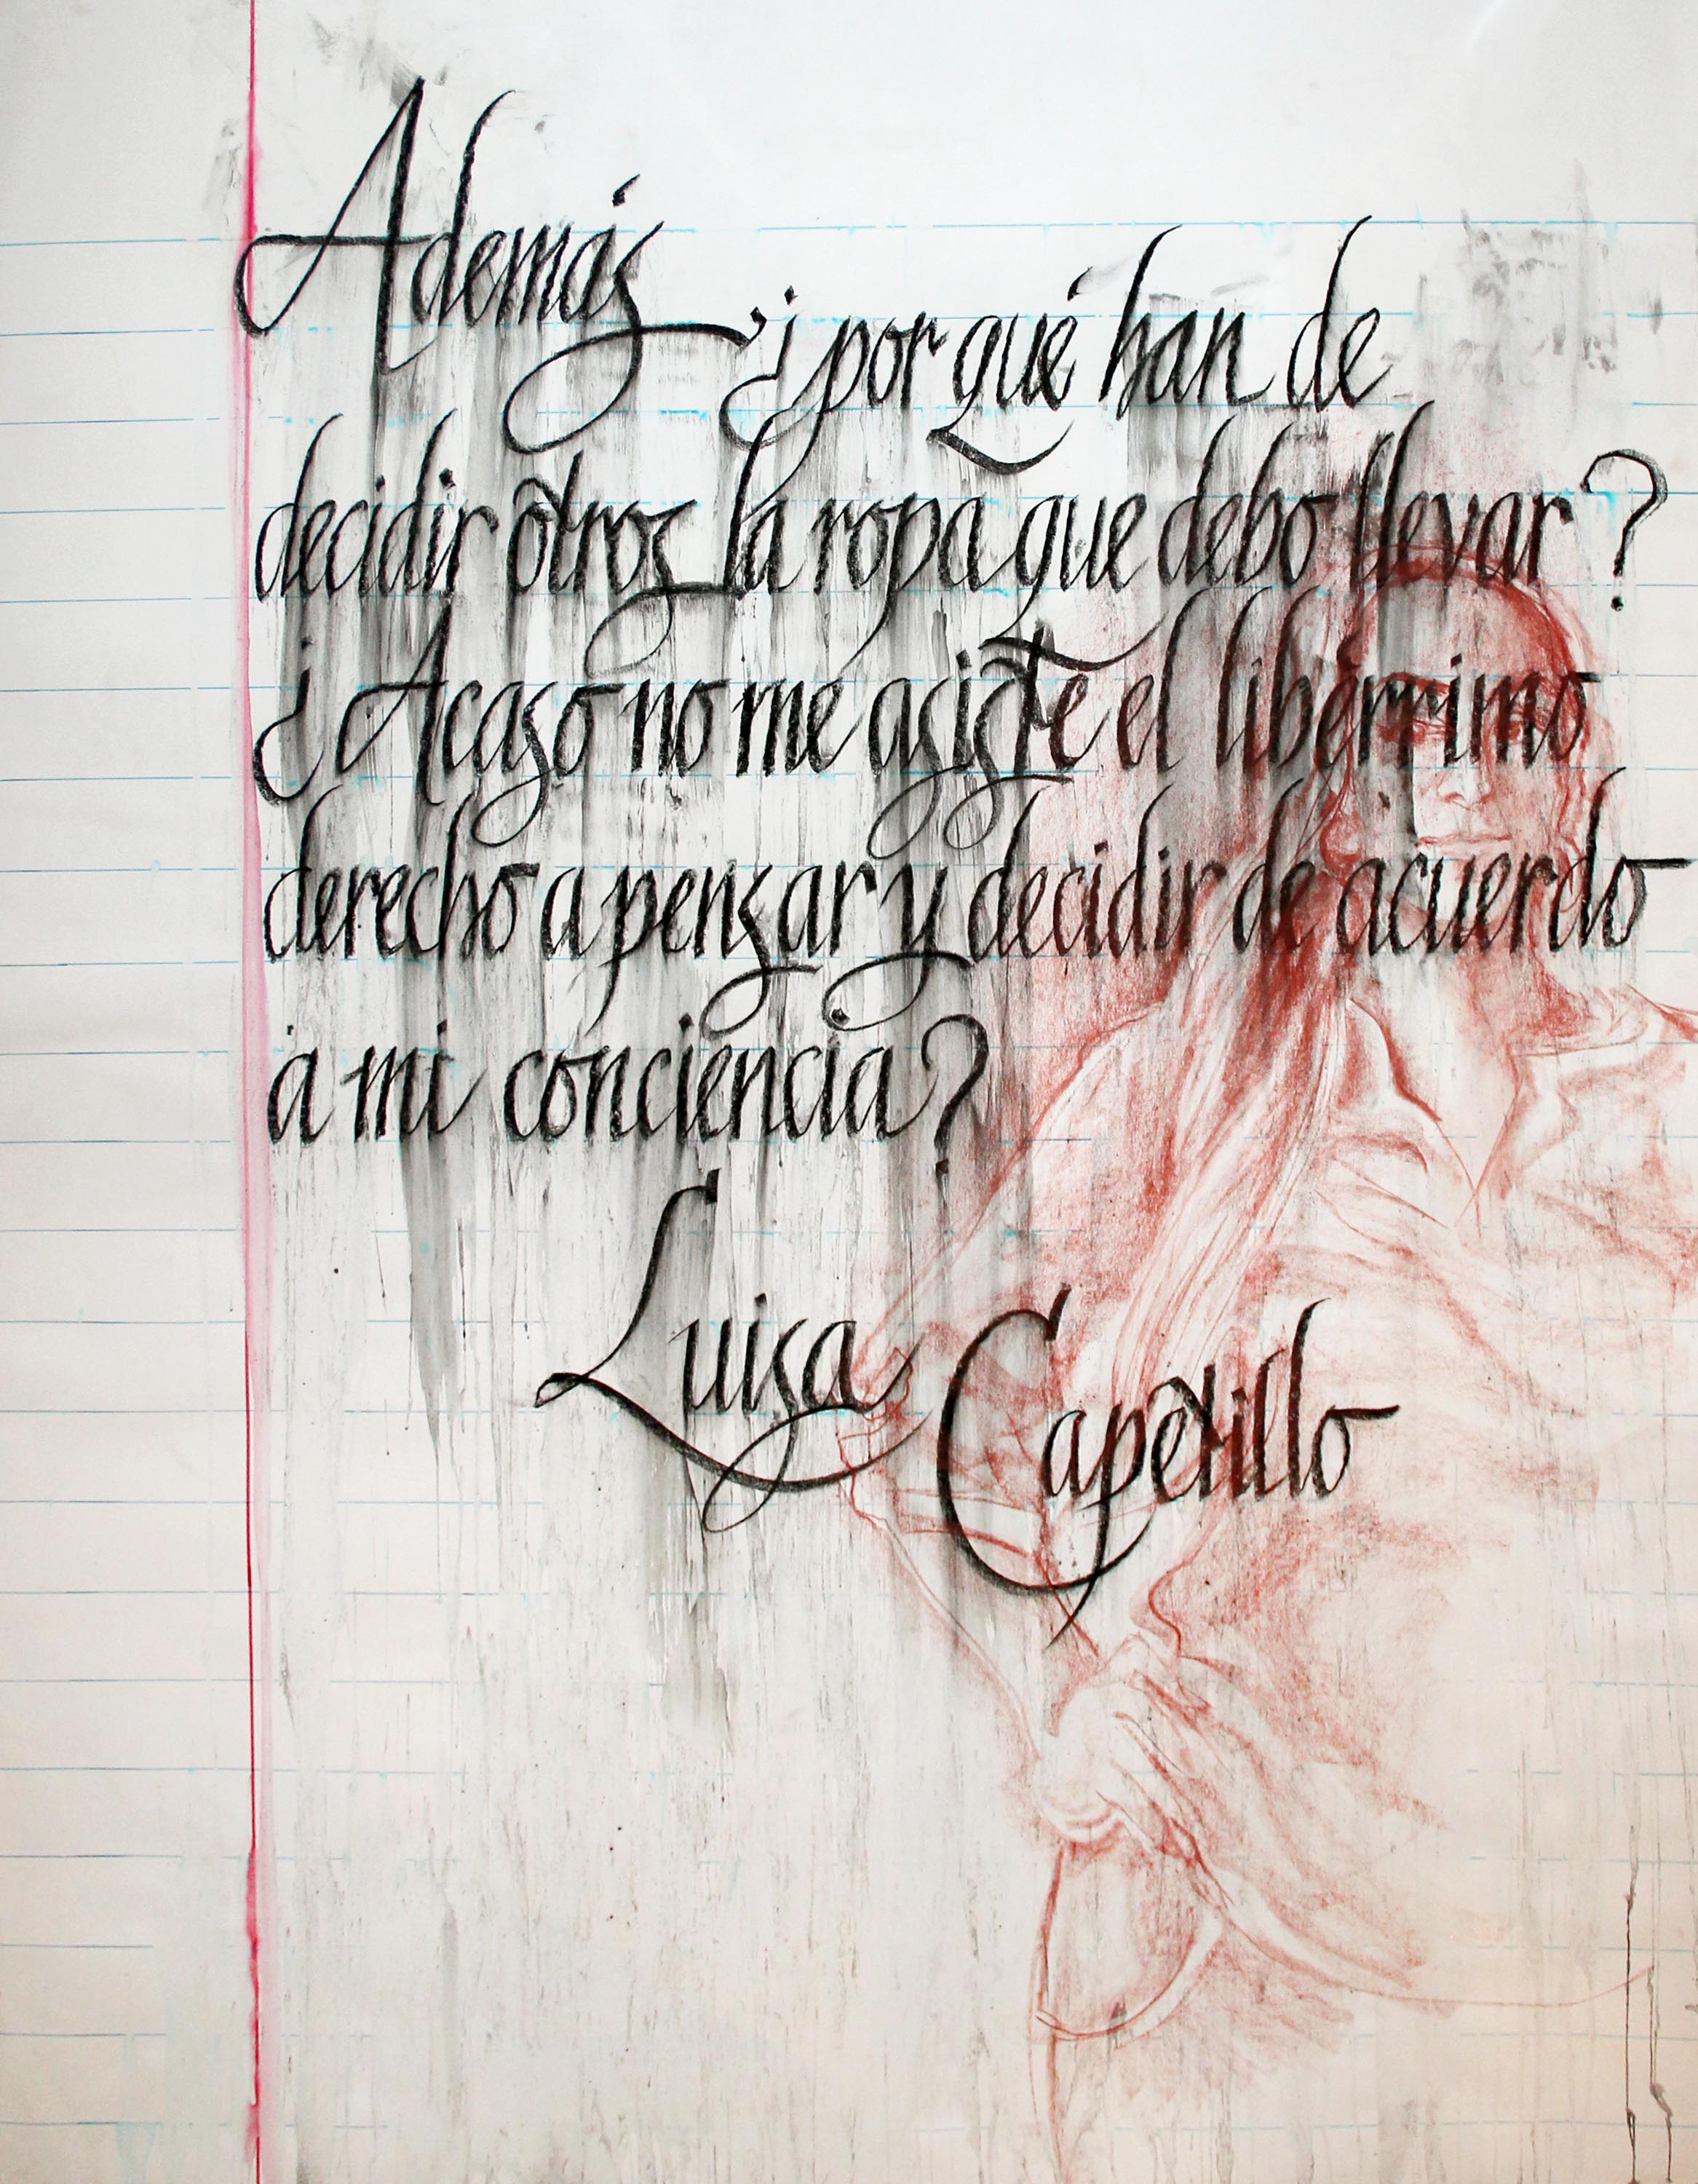 Además, ¿por qué han de
decidir otros la ropa que debo llevar?
¿Acaso no me asiste el libérrimo
derecho a pensar y decidir de acuerdo
a mi conciencia?
Luisa
Capetillo